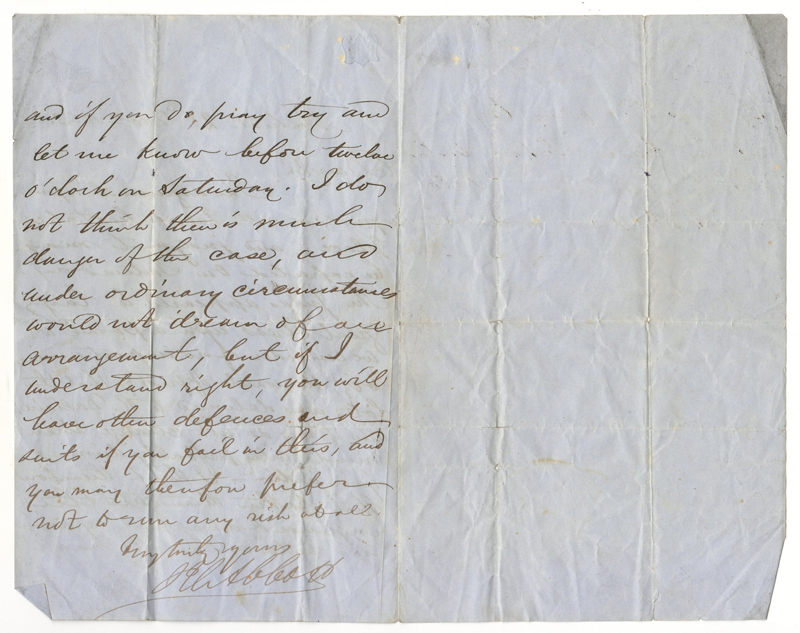 and if you do, pray try and
let me know before twelve
o'clock on Saturday. I do
not think there is much
danger of the case, and
under ordinary circumstances
would not dream of an
arrangement, but if I
understand right, you will
have other defences and
suits if you fail in this, and
you may therefore prefer
not to run any risk at all
Very truly yours
Abbott